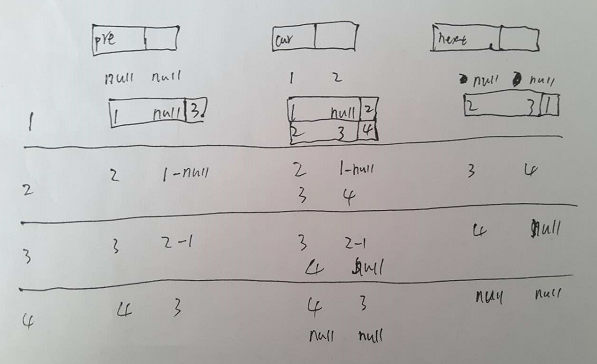 pre cur next
null null 1 2 null null
1 1 null 3 1 null 2 2 3 1
2 3 4
2 2 1-null 2 1-null 3 4
3 4
3 3 2-1 3 2-1 4 null
4 null
4 4 3 4 3 null null
null null